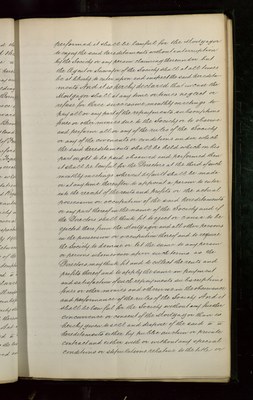 performed it shall be lawful for the Mortgagor
to enjoy the said hereditaments without interruption
by the Society or any person claiming thereunder but
the Agent or Surveyor of the Society shall at all times
be at liberty to enter upon and inspect the said heredita-
ments And it is hereby declared that in case the
Mortgagor shall at any time or times neglect or
refuse for three successive monthly meetings to
pay all or any part of the repayments subscriptions
fines or other monies due to the Society or to observe
and perform all or any of the rules of the Society
or any of the covenants or conditions under which
the said hereditaments shall be held which on his
part ought to be paid observed and performed then
it shall be lawful for the Directors at the third of such
monthly meetings whereat default shall be made
or at any time thereafter to appoint a person to enter
into the receipt of the rents and profits or the actual
possession or occupation of the said hereditaments
or any part thereof on the account of the Society and if
the Directors shall think fit to eject or cause to be
ejected therefrom the Mortgagor and all other persons
in the possession or occupation thereof and to request
the Society to demise or let the same to any person
or persons whomsoever upon such terms as the
Directors may think fit and to collect the rents and
profits thereof and to apply the same in payment
and satisfaction of such repayments subscriptions
fines or other monies and otherwise in the observance
and performance of the rules of the Society And it
shall be lawful for the Society without any further
concurrence or consent of the Mortgagor than is
hereby given to sell and dispose of the said
hereditaments either by public auction or private
contract and either with or without any special
conditions or stipulations relative to the title or